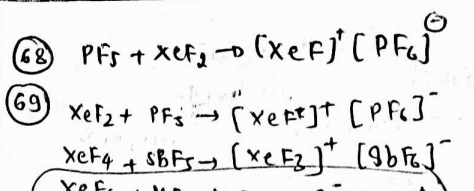 68 PF5 + XeF2 → [XeF]⁺ [PF6]⁻
69 XeF2 + PF5 → [XeF]⁺ [PF6]⁻
XeF4 + SBF5 → [XeF3]⁺ [SbF6]⁻